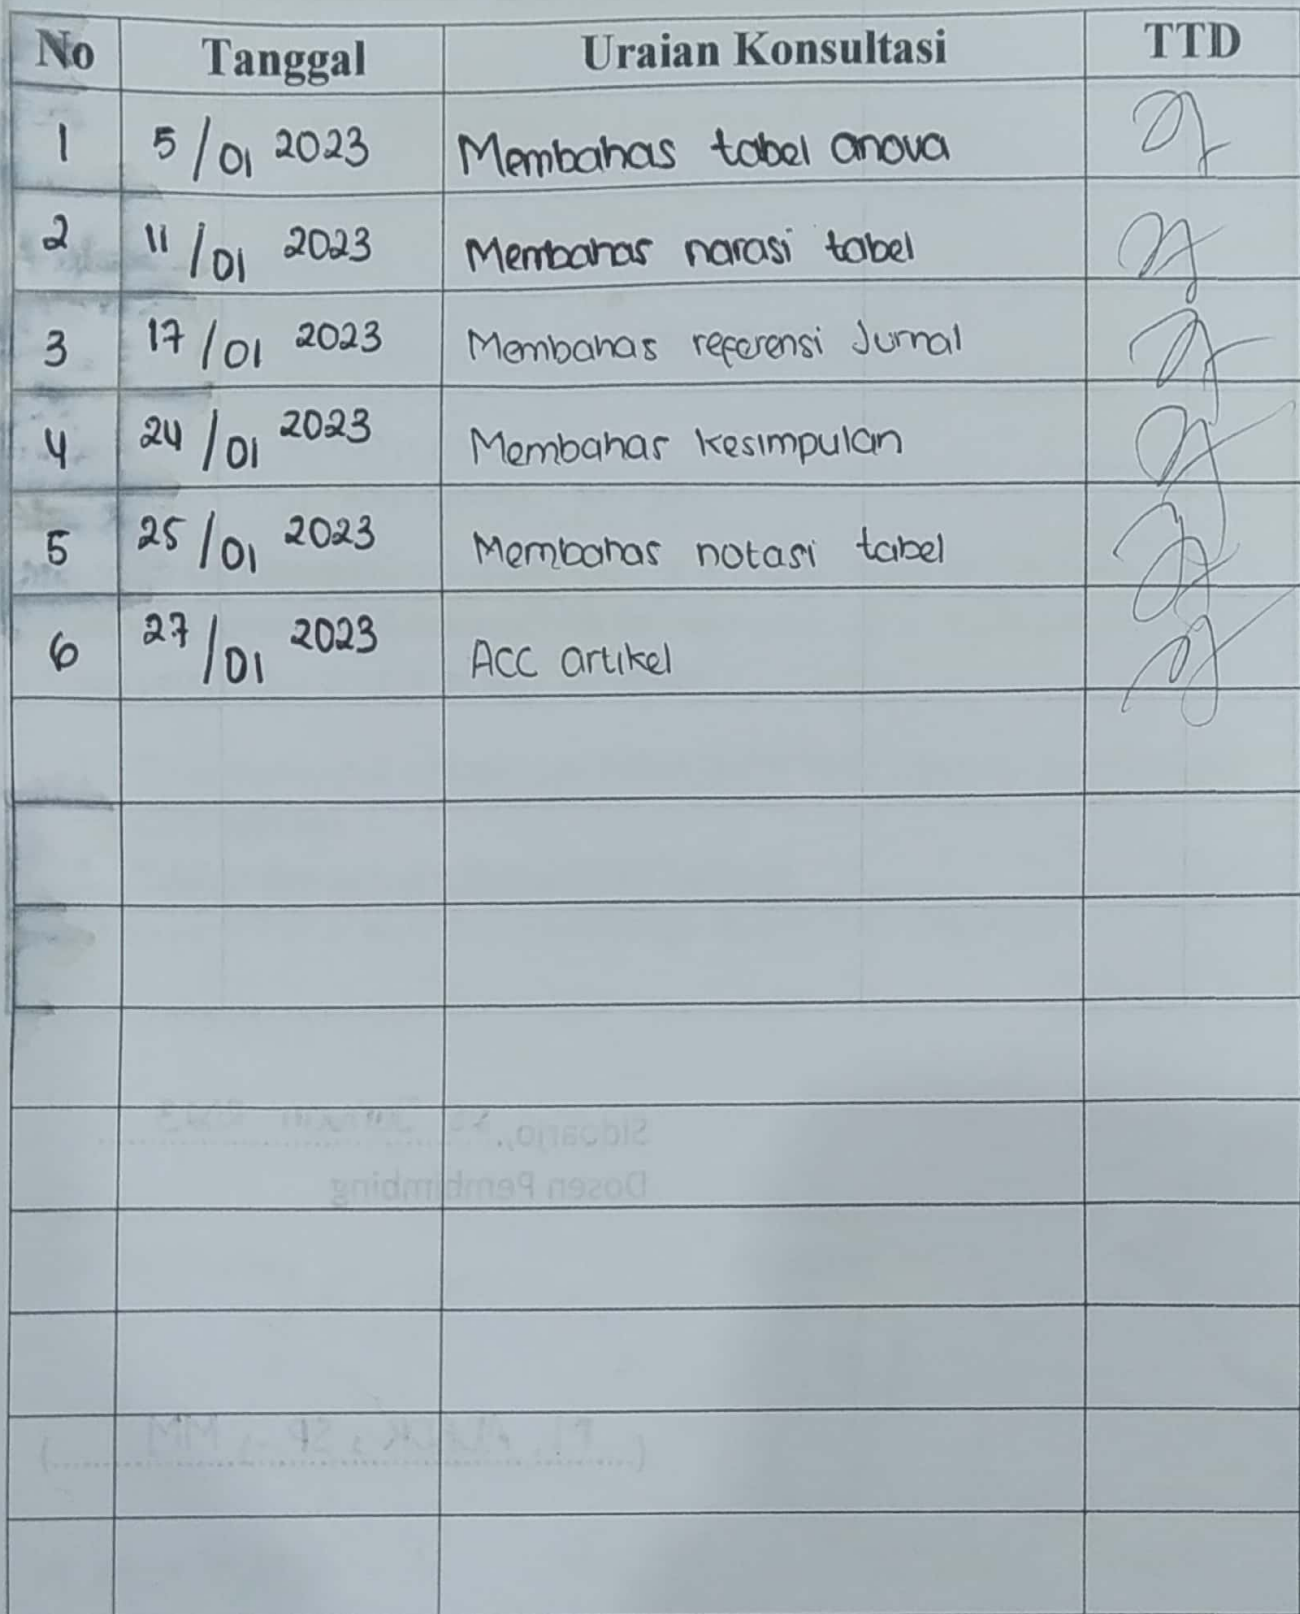 No Tanggal Uraian Konsultasi TTD
1 5/01 2023 Membahas tabel anova
2 11/01 2023 Membahas narasi tabel
3 17/01 2023 Membahas referensi Jurnal
4 24/01 2023 Membahas kesimpulan
5 25/01 2023 Membahas notasi tabel
6 27/01 2023 ACC artikel
Sidoarjo,
Dosen Pembimbing